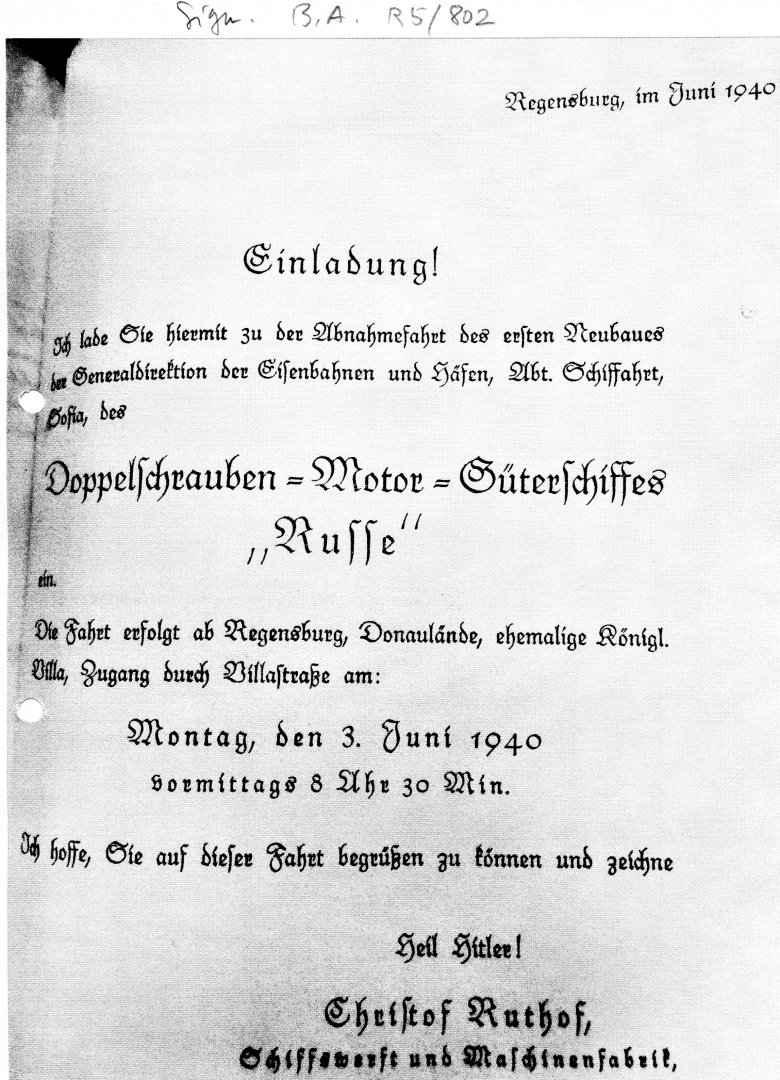 Sign. B.A. R5/802
Regensburg, im Juni 1940
Einladung!
Ich lade Sie hiermit zu der Abnahmefahrt des ersten Neubaues
der Generaldirektion der Eisenbahnen und Häfen, Abt. Schiffahrt,
Sofia, des
Doppelschrauben = Motor = Güterschiffes
„Russe“
ein.
Die Fahrt erfolgt ab Regensburg, Donaulände, ehemalige Königl.
Villa, Zugang durch Villastraße am:
Montag, den 3. Juni 1940
vormittags 8 Uhr 30 Min.
Ich hoffe, Sie auf dieser Fahrt begrüßen zu können und zeichne
Heil Hitler!
Christof Ruthof,
Schiffswerft und Maschinenfabrik,